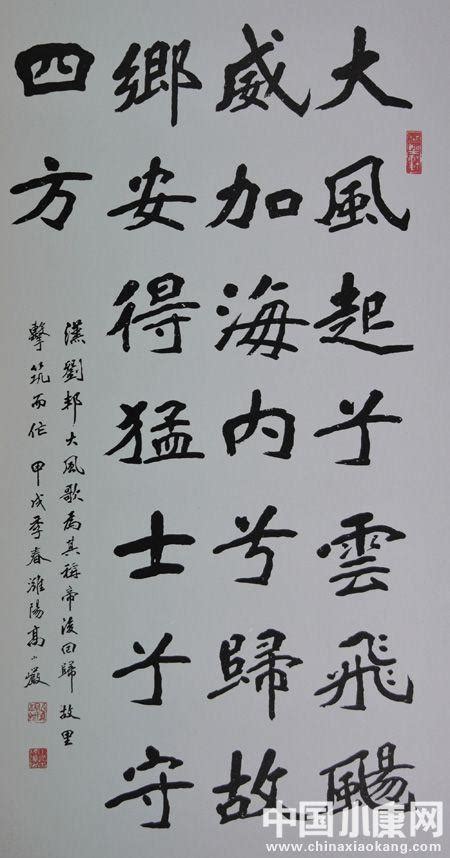 大風起兮雲飛颺
威加海内兮歸故
鄉安得猛士兮守
四方
漢劉邦大風歌為其稱帝後回歸故里
擊筑而作 甲戌季春濰陽高小嚴
中国小康网
www.chinaxiaokang.com